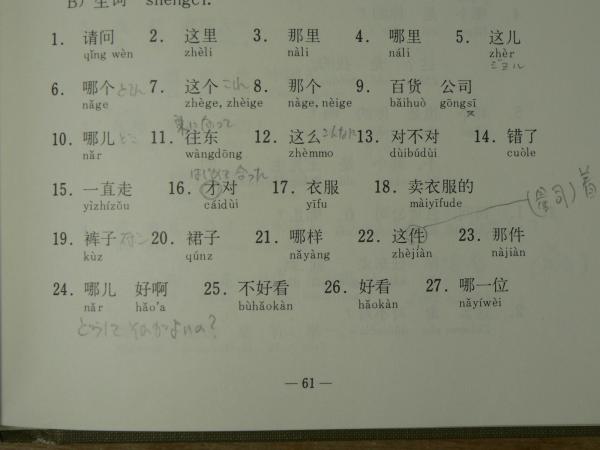 B) 生词 shengci.
1. 请问 2. 这里 3. 那里 4. 哪里 5. 这儿
qǐng wèn zhèli nàli náli zhèr
ジョル
6. 哪个 どれ 7. 这个 これ 8. 那个 9. 百货 公司
nǎge zhège, zhèige nàge, nèige bǎihuò gōngsī
ス
東に向って
10. 哪儿 どこ 11. 往东 12. 这么 こんなに 13. 对不对 14. 错了
nǎr wàngdōng zhèmmo dùibúdùi cuòle
はじめて合った
15. 一直走 16. 才对 17. 衣服 18. 卖衣服的
yìzhízǒu cáidùi yīfu màiyīfude
着
19. 裤子 20. 裙子 21. 哪样 22. 这件 23. 那件
kùz qúnz nǎyàng zhèjiàn nàjiàn
24. 哪儿 好啊 25. 不好看 26. 好看 27. 哪一位
nǎr hǎo'a bùhǎokàn hǎokàn nǎyíwèi
どうして それがよいの?
— 61 —